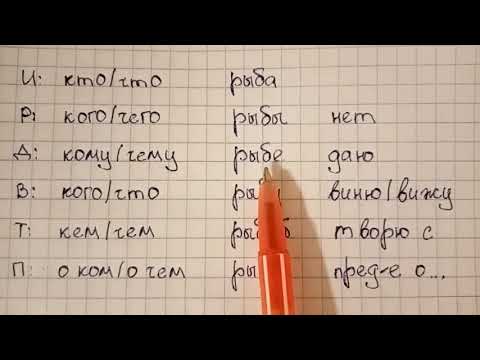 И: кто/что рыба
Р: кого/чего рыбы нет
Д: кому/чему рыбе даю
В: кого/что виню/вижу
Т: кем/чем творю с
П: о ком/о чем пред-е о...